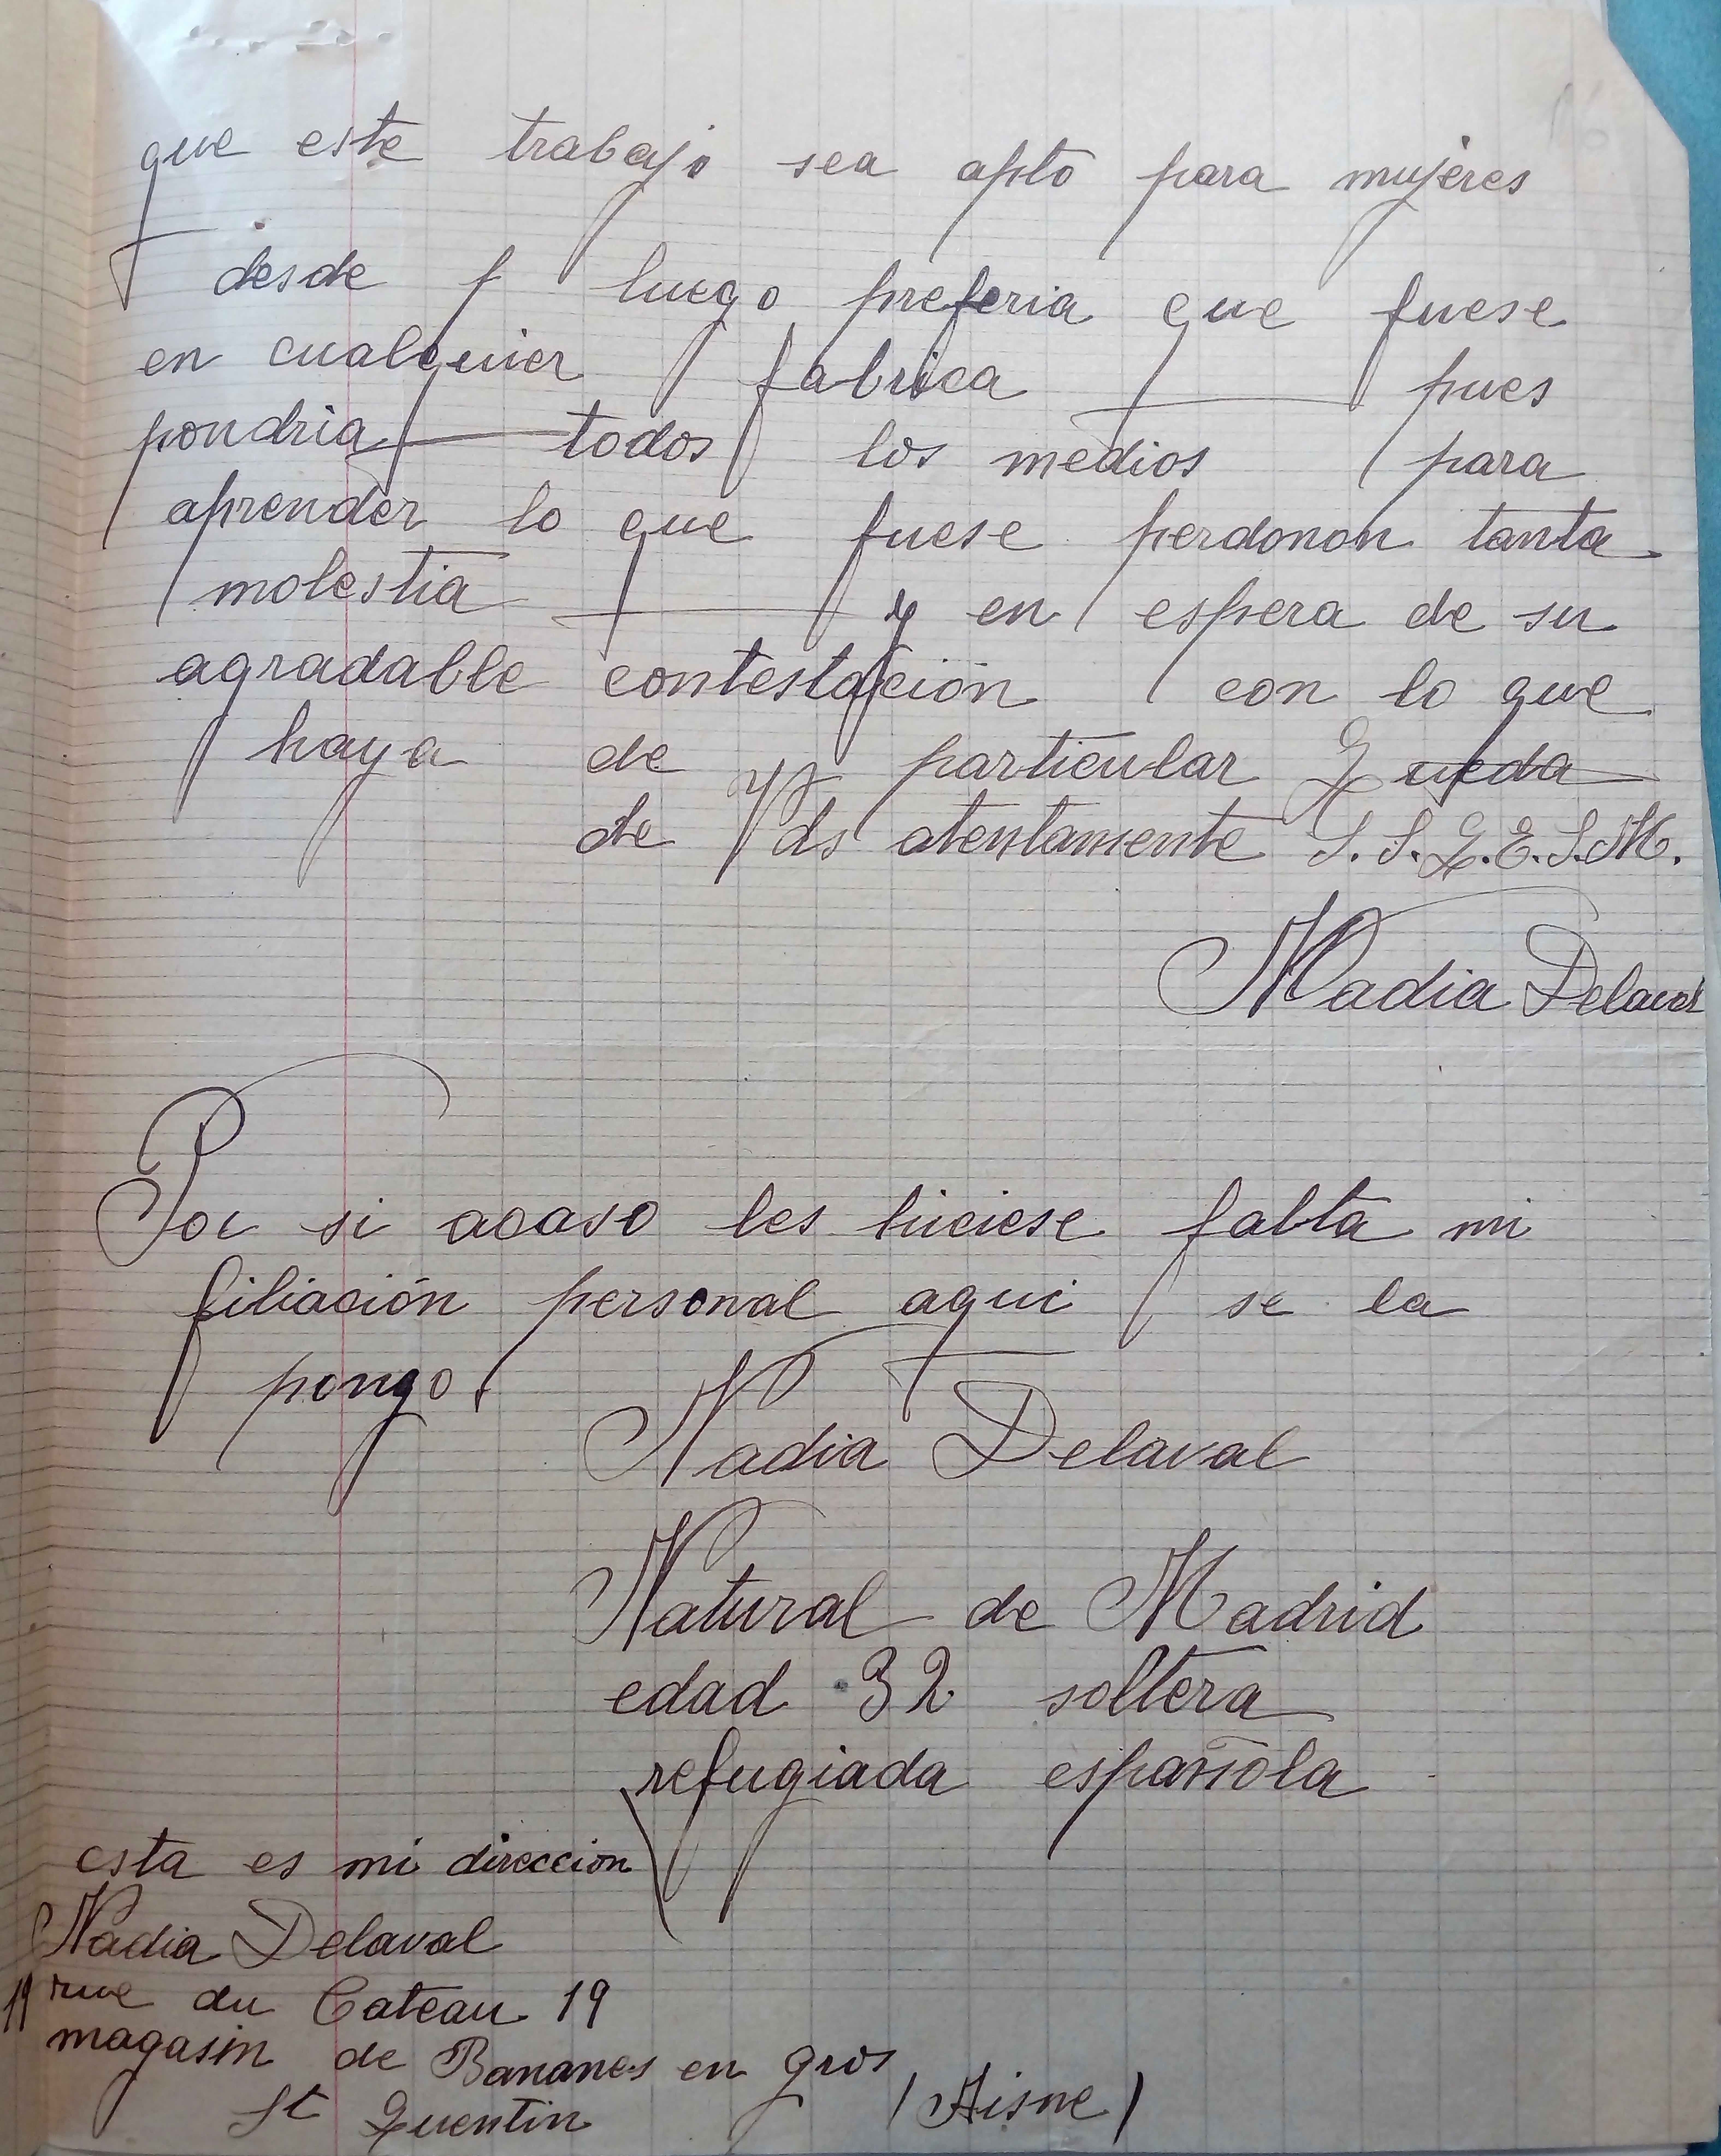 que este trabajo sea apto para mujeres
desde luego preferia que fuese
en cualquier fabrica pues
pondria todos los medios para
aprender lo que fuese perdonon tanta
molestia y en espera de su
agradable contestación con lo que
haya de particular Queda
de Vds atentamente S.S.Q.E.S.M.
Nadia Delaval
Por si acaso les hiciese falta mi
filiación personal aqui se la
pongo.
Nadia Delaval
Natural de Madrid
edad 32 soltera
refugiada española
esta es mi direccion
Nadia Delaval
19 rue du Cateau 19
magasin de Bananes en gros
St Quentin (Aisne)